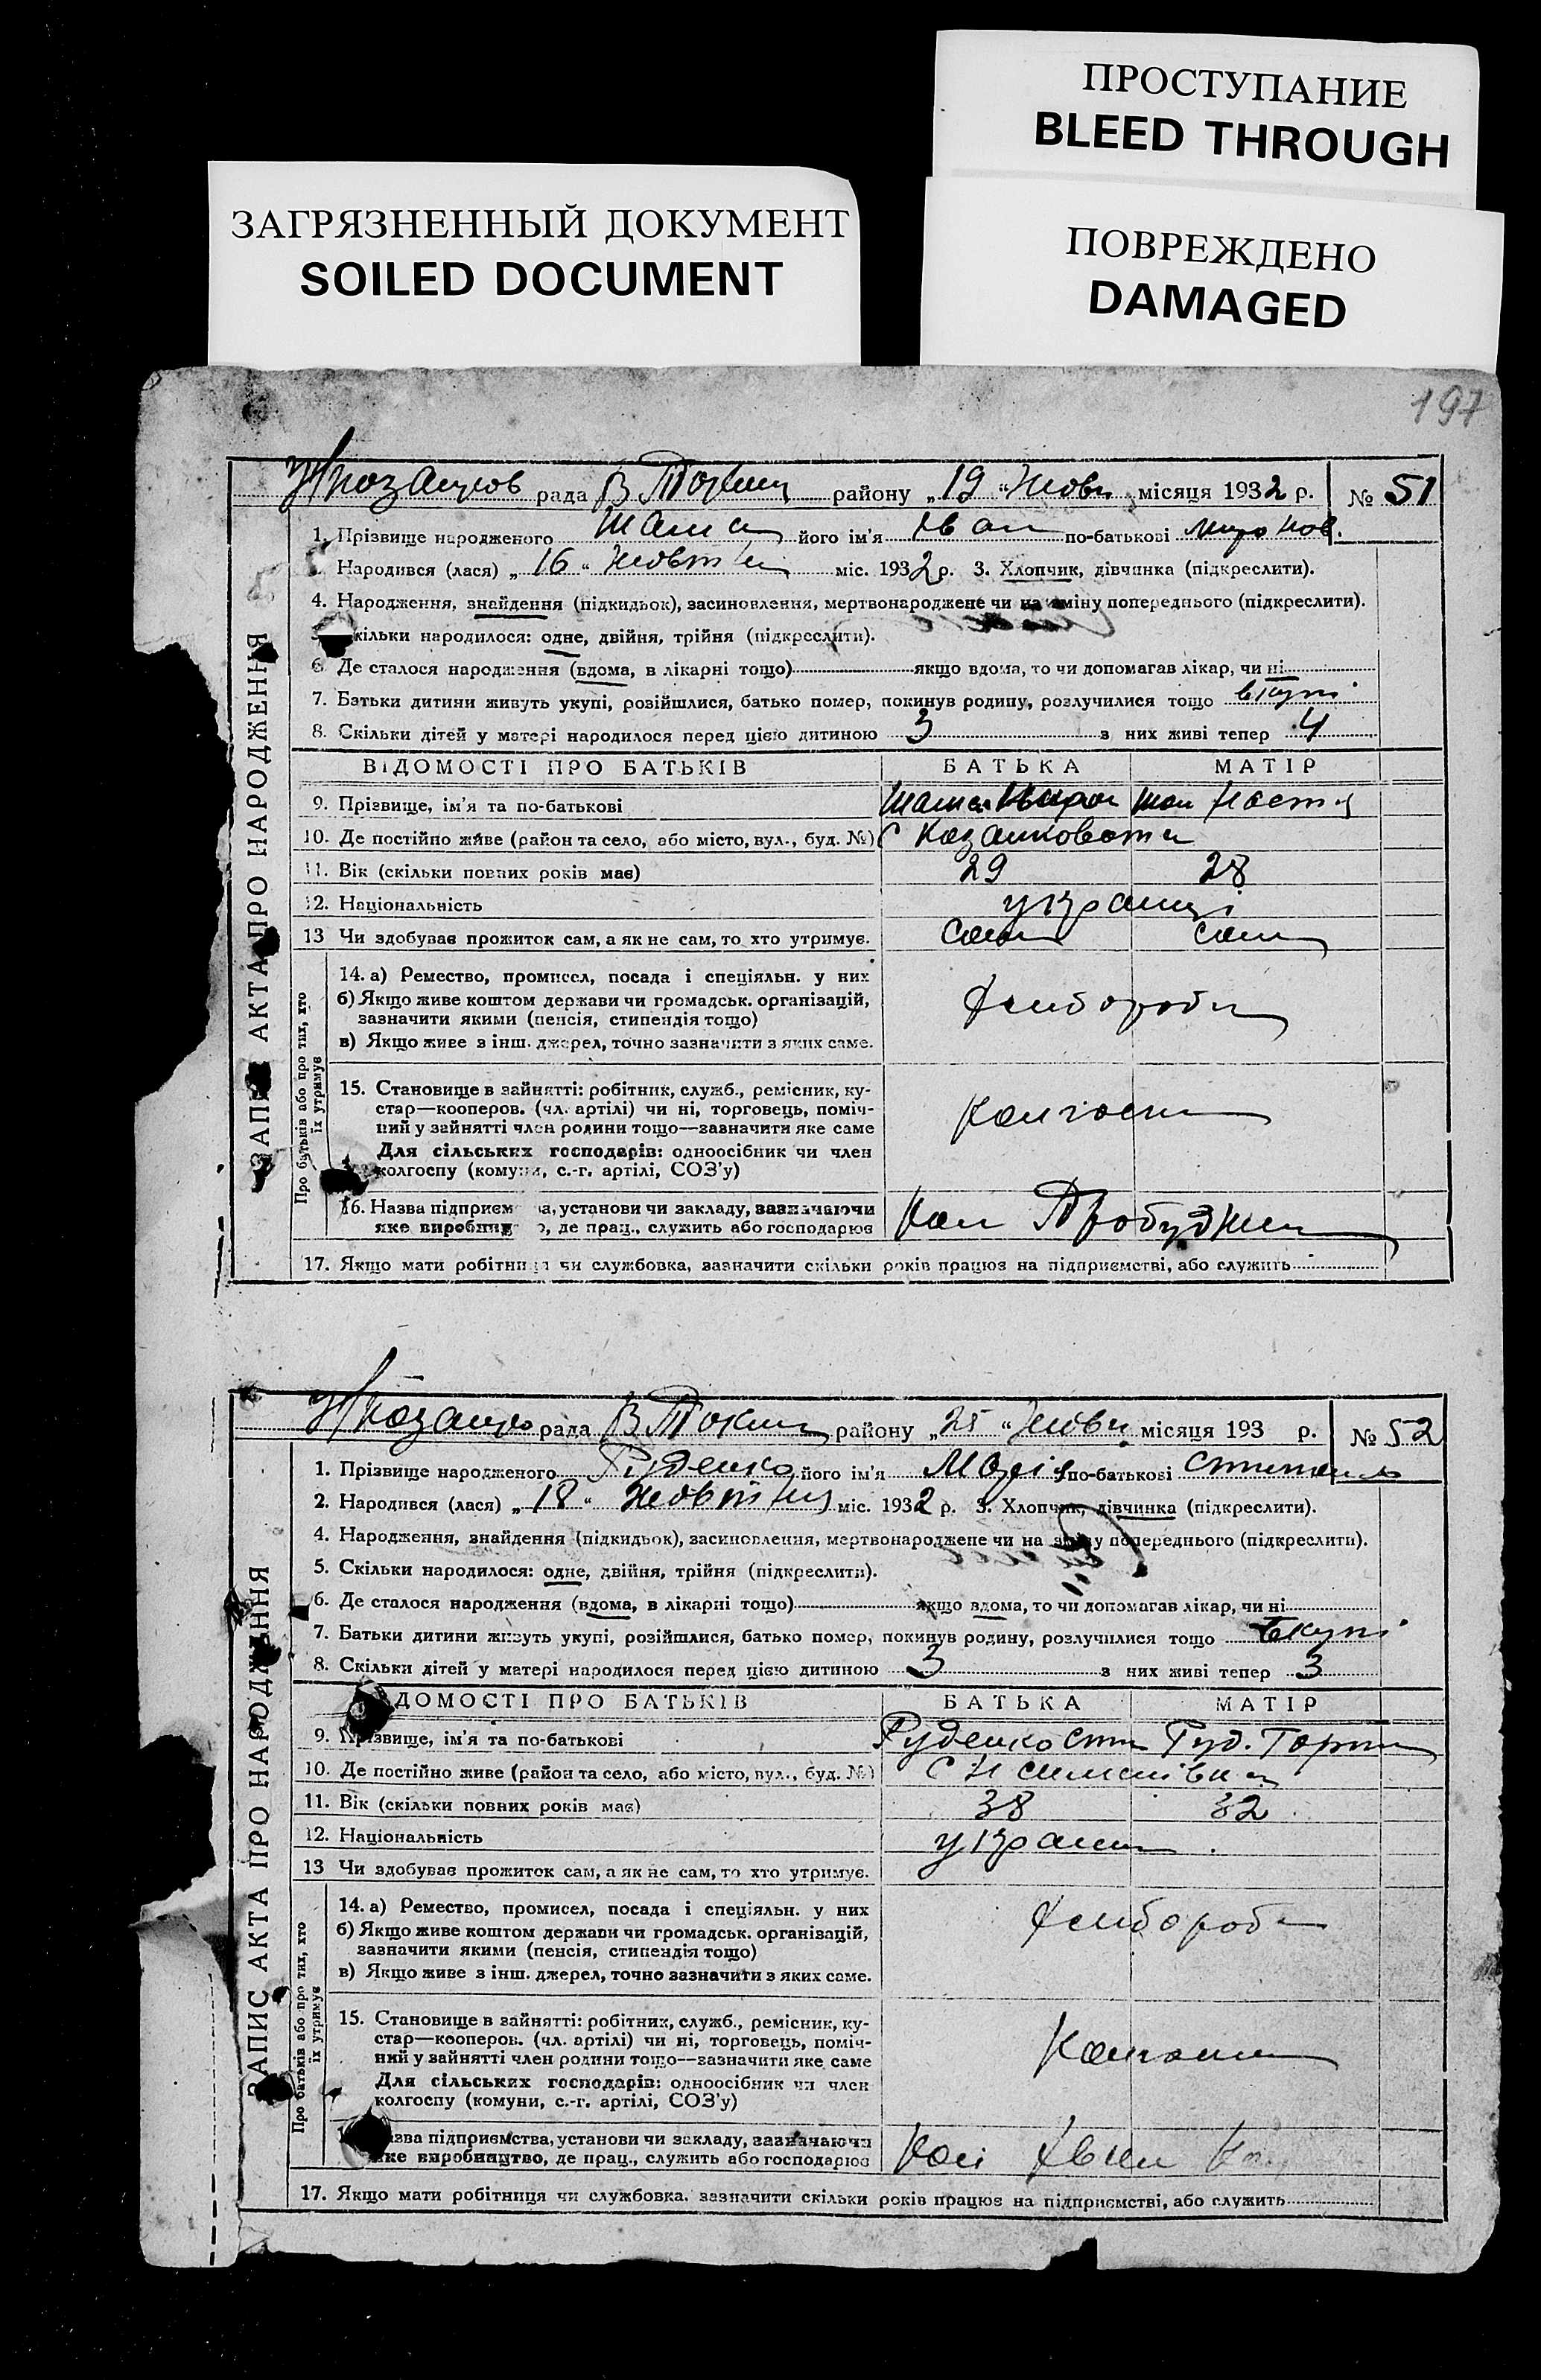 ПРОСТУПАНИЕ
BLEED THROUGH
ЗАГРЯЗНЕННЫЙ ДОКУМЕНТ
SOILED DOCUMENT
ПОВРЕЖДЕНО
DAMAGED
197
рада В Токм району „19“ Жовт місяця 1932 р. № 51
1. Прізвище народженого його ім'я Іван по-батькові Миронов.
Народився (лася) „16“ Жовтня міс. 1932 р. 3. Хлопчик, дівчинка (підкреслити).
4. Народження, знайдення (підкидьок), засиновлення, мертвонароджене чи на зміну попереднього (підкреслити).
кільки народилося: одне, двійня, трійня (підкреслити).
6. Де сталося народження (вдома, в лікарні тощо) якщо вдома, то чи допомагав лікар, чи ні
7. Батьки дитини живуть укупі, розійшлися, батько помер, покинув родину, розлучилися тощо вкупі
8. Скільки дітей у матері народилося перед цією дитиною 3 з них живі тепер 4
ВІДОМОСТІ ПРО БАТЬКІВ БАТЬКА МАТІР
9. Прізвище, ім'я та по-батькові
10. Де постійно живе (район та село, або місто, вул., буд. №) с
11. Вік (скільки повних років має) 29 28
12. Національність українці
13 Чи здобуває прожиток сам, а як не сам, то хто утримує. Сам Сам
14. а) Ремество, промисел, посада і спеціяльн. у них
б) Якщо живе коштом держави чи громадськ. організацій,
зазначити якими (пенсія, стипендія тощо)
в) Якщо живе з інш. джерел, точно зазначити з яких саме.
Хлібороби
15. Становище в зайнятті: робітник, служб., ремісник, ку-
стар—кооперов. (чл. артілі) чи ні, торговець, поміч-
ний у зайнятті член родини тощо—зазначити яке саме
Для сільських господарів: одноосібник чи член
колгоспу (комуни, с.-г. артілі, СОЗ'у)
Колгосп
16. Назва підприєм ва, установи чи закладу, зазначаючи
яке виробниц о, де прац., служить або господарює
Кол
17. Якщо мати робітниця чи службовка, зазначити скільки років працює на підприємстві, або служить
ЗАПИС АКТА ПРО НАРОДЖЕННЯ
Про батьків або про тих, хто
їх утримує
рада В Токм району „25“ Жовт місяця 193 р. № 52
1. Прізвище народженого Руденко його ім'я Марія по-батькові
2. Народився (лася) „18“ Жовтня міс. 1932 р. 3. Хлопчик, дівчинка (підкреслити).
4. Народження, знайдення (підкидьок), засиновлення, мертвонароджене чи на зміну попереднього (підкреслити).
5. Скільки народилося: одне, двійня, трійня (підкреслити).
6. Де сталося народження (вдома, в лікарні тощо) якщо вдома, то чи допомагав лікар, чи ні
7. Батьки дитини живуть укупі, розійшлися, батько помер, покинув родину, розлучилися тощо вкупі
8. Скільки дітей у матері народилося перед цією дитиною 3 з них живі тепер 3
ДОМОСТІ ПРО БАТЬКІВ БАТЬКА МАТІР
9. Прізвище, ім'я та по-батькові Руденко Руд.
10. Де постійно живе (район та село, або місто, вул., буд. №) с
11. Вік (скільки повних років має) 38 32
12. Національність україн
13 Чи здобуває прожиток сам, а як не сам, то хто утримує.
14. а) Ремество, промисел, посада і спеціяльн. у них
б) Якщо живе коштом держави чи громадськ. організацій,
зазначити якими (пенсія, стипендія тощо)
в) Якщо живе з інш. джерел, точно зазначити з яких саме.
Хлібороб
15. Становище в зайнятті: робітник, служб., ремісник, ку-
стар—кооперов. (чл. артілі) чи ні, торговець, поміч-
ний у зайнятті член родини тощо—зазначити яке саме
Для сільських господарів: одноосібник чи член
колгоспу (комуни, с.-г. артілі, СОЗ'у)
Колгосп
азва підприємства, установи чи закладу, зазначаючи
яке виробництво, де прац., служить або господарює
Кол
17. Якщо мати робітниця чи службовка, зазначити скільки років працює на підприємстві, або служить
ЗАПИС АКТА ПРО НАРОДЖЕННЯ
Про батьків або про тих, хто
їх утримує